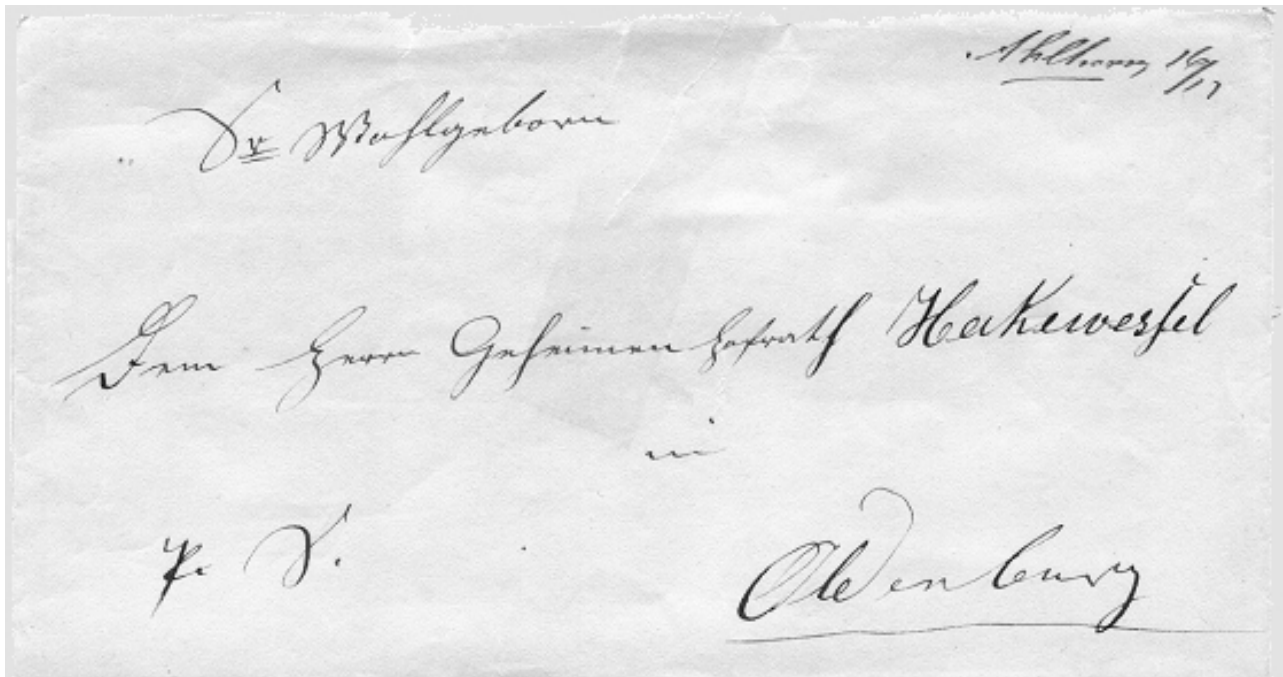 Ahlhorn 16/11
Sr Wohlgeborn
Dem Herrn Geheimen Hofrath Hakewessel
in
P. S.
Oldenburg